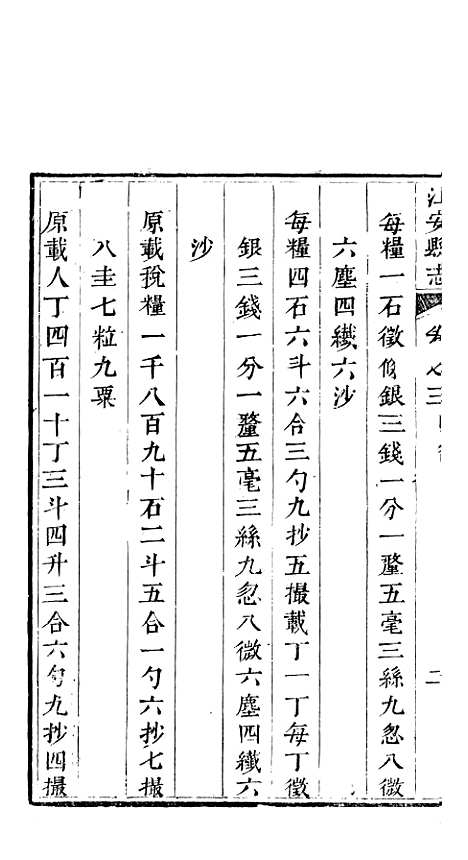 江安縣志
每糧一石徵條銀三錢一分一釐五毫三絲九忽八微
六塵四纎六沙
每糧四石六斗六合三勺九抄五撮載丁一丁每丁徵
銀三錢一分一釐五毫三絲九忽八微六塵四纖六
沙
原載稅糧一千八百九十石二斗五合一勺六抄七撮
八圭七粒九粟
原載人丁四百一十丁三斗四升三合六勺九抄四撮